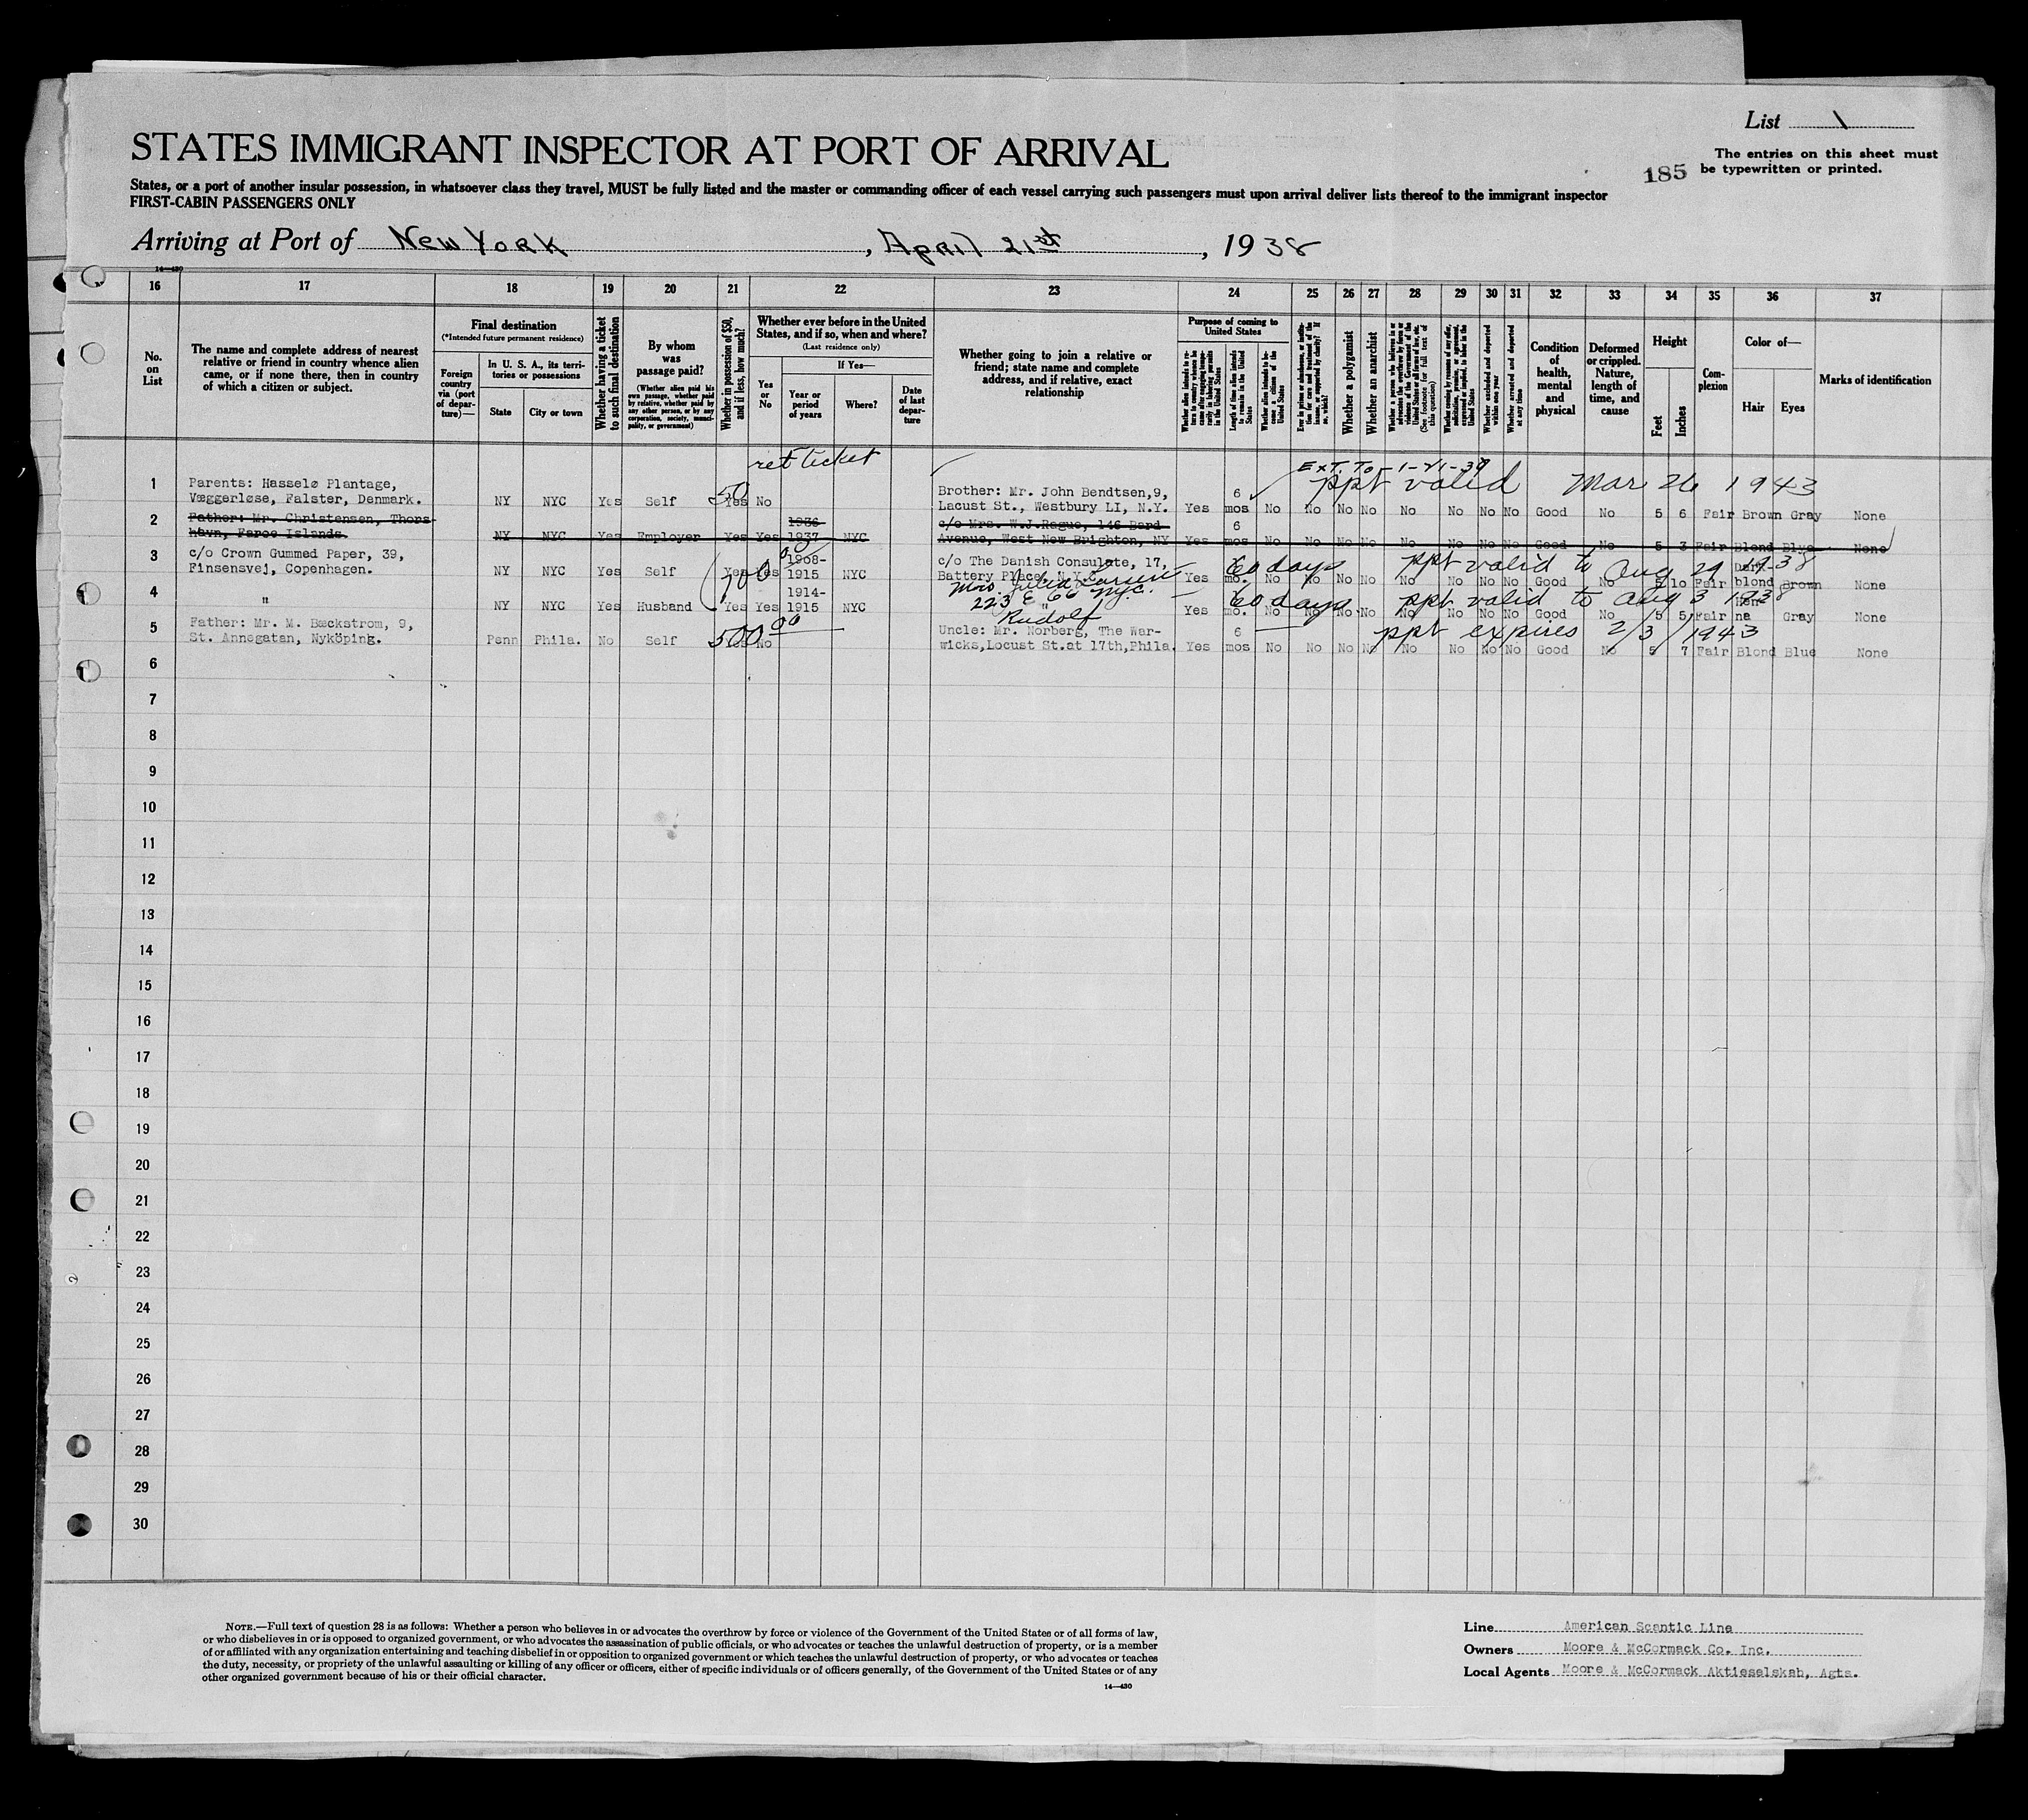 List 1
STATES IMMIGRANT INSPECTOR AT PORT OF ARRIVAL
The entries on this sheet must
be typewritten or printed.
185
States, or a port of another insular possession, in whatsoever class they travel, MUST be fully listed and the master or commanding officer of each vessel carrying such passengers must upon arrival deliver lists thereof to the immigrant inspector
FIRST-CABIN PASSENGERS ONLY
Arriving at Port of New York, April 21st, 1938
14—430
16 17 18 19 20 21 22 23 24 25 26 27 28 29 30 31 32 33 34 35 36 37
No. on List
The name and complete address of nearest relative or friend in country whence alien came, or if none there, then in country of which a citizen or subject.
Final destination
(*Intended future permanent residence)
Foreign country via (port of departure)—
In U. S. A., its territories or possessions
State
City or town
Whether having a ticket to such final destination
By whom was passage paid?
(Whether alien paid his own passage, whether paid by relative, whether paid by any other person, or by any corporation, society, municipality, or government)
Whether in possession of $50, and if less, how much?
Whether ever before in the United States, and if so, when and where?
(Last residence only)
Yes or No
If Yes—
Year or period of years
Where?
Date of last departure
Whether going to join a relative or friend; state name and complete address, and if relative, exact relationship
Purpose of coming to United States
Length of time alien intends to remain in the United States
Whether alien intends to become a citizen of the United States
Whether a polygamist
Whether an anarchist
Whether excluded and deported within one year
Whether arrested and deported at any time
Condition of health, mental and physical
Deformed or crippled. Nature, length of time, and cause
Height
Feet
Inches
Complexion
Color of—
Hair
Eyes
Marks of identification
ret ticket
EXT. TO 1-21-39
ppt valid Mar 26 1943
1 Parents: Hasselø Plantage,
Væggerløse, Falster, Denmark. NY NYC Yes Self 50 Yes No Brother: Mr. John Bendtsen,9,
Lacust St., Westbury LI, N.Y. Yes 6 mos No No No No No No No No Good No 5 6 Fair Brown Gray None
2 Father: Mr. Christensen, Thors
havn, Faroe Islands. NY NYC Yes Employer Yes Yes 1936 1937 NYC c/o Mrs. W.J.Rague, 146 Bard
Avenue, West New Brighton, NY Yes 6 mos No No No No No No No No Good No 5 3 Fair Blond Blue None
3 c/o Crown Gummed Paper, 39,
Finsensvej, Copenhagen. NY NYC Yes Self Yes Yes 1908-
1915 NYC c/o The Danish Consulate, 17,
Battery Place, N.Y. Yes mo. No No No No No No No No Good No 10 Fair blond Brown None
60 days ppt valid to Aug 29 1938
Mrs. Julia Larsen
223 E 66 NYC.
4 " NY NYC Yes Husband Yes Yes 1914-
1915 NYC " Yes mo. No No No No No No No No Good No 5 5 Fair Henna Gray None
60 days ppt valid to Aug 3 1938
Rudolf
5 Father: Mr. M. Bæckstrom, 9,
St. Annegatan, Nyköping. Penn Phila. No Self 500 00 Yes No Uncle: Mr. Norberg, The War-
wicks,Locust St.at 17th,Phila. Yes 6 mos No No No No No No No No Good No 5 7 Fair Blond Blue None
ppt expires 2/3/1943
6
7
8
9
10
11
12
13
14
15
16
17
18
19
20
21
22
23
24
25
26
27
28
29
30
NOTE.—Full text of question 28 is as follows: Whether a person who believes in or advocates the overthrow by force or violence of the Government of the United States or of all forms of law,
or who disbelieves in or is opposed to organized government, or who advocates the assassination of public officials, or who advocates or teaches the unlawful destruction of property, or is a member
of or affiliated with any organization entertaining and teaching disbelief in or opposition to organized government or which teaches the unlawful destruction of property, or who advocates or teaches
the duty, necessity, or propriety of the unlawful assaulting or killing of any officer or officers, either of specific individuals or of officers generally, of the Government of the United States or of any
other organized government because of his or their official character.
14—430
Line American Scantic Line
Owners Moore & McCormack Co. Inc.
Local Agents Moore & McCormack Aktieselskab, Agts.